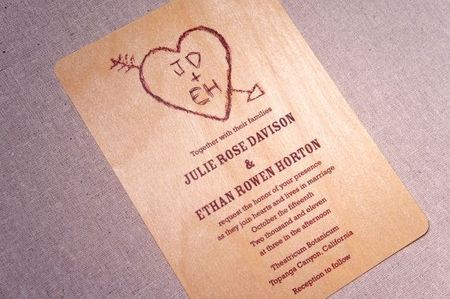 JD
+
EH
Together with their families
JULIE ROSE DAVISON
&
ETHAN ROWEN HORTON
request the honor of your presence
as they join hearts and lives in marriage
October the fifteenth
Two thousand and eleven
at three in the afternoon
Theatricum Botanicum
Topanga Canyon, California
Reception to follow